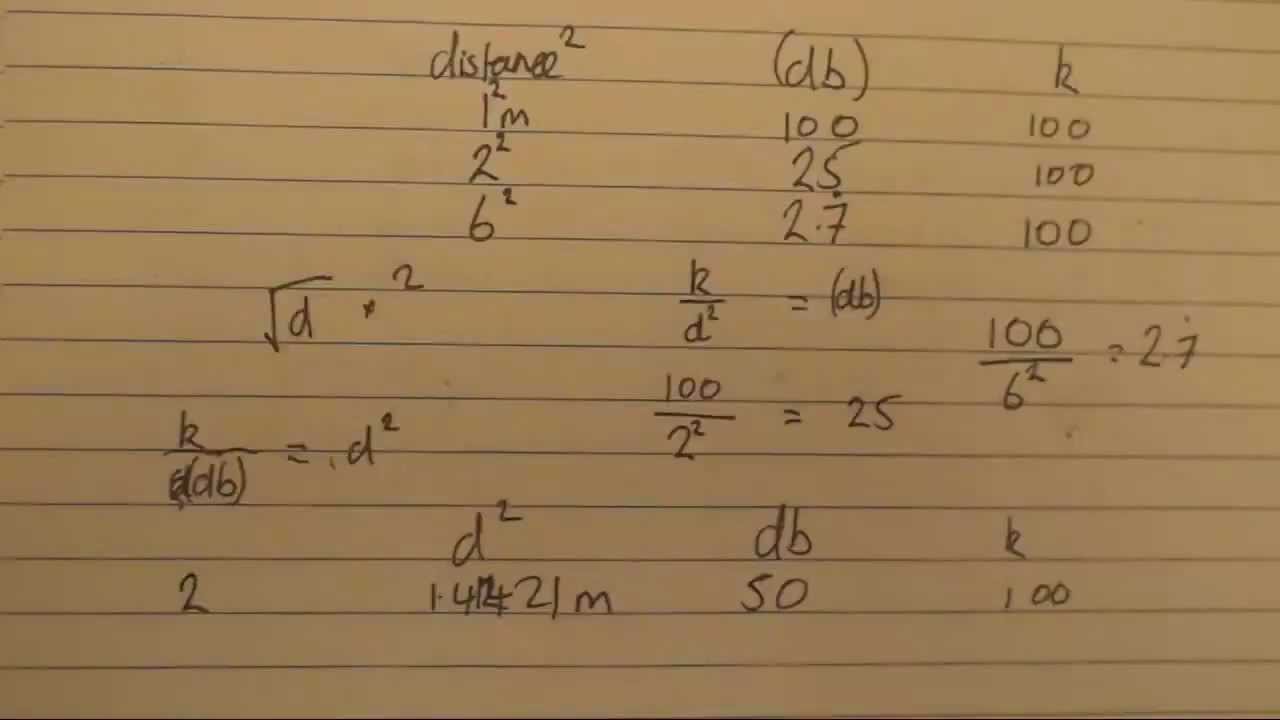 distance² (db) k
1²m 100 100
2² 25 100
6² 2.7̇ 100
√d * 2 k/d² = (db)
100/6² = 2.7̇
100/2² = 25
k/(db) = d²
d² db k
2 1.41421m 50 100